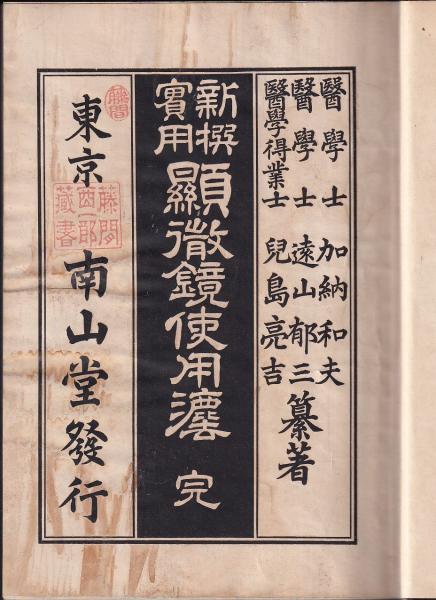 醫學士 加納和夫
醫學士 遠山郁三
醫學得業士 兒島亮吉
纂著
新撰
實用
顯微鏡使用灋 完
東京 南山堂發行
藤間
藏書